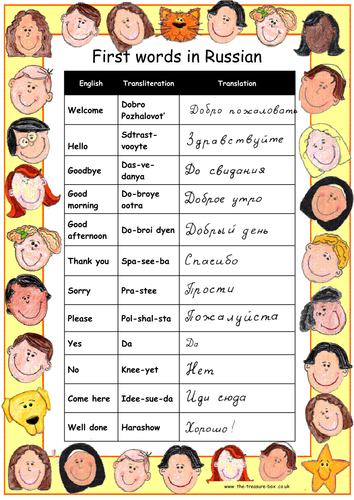 First words in Russian
English Transliteration Translation
Welcome Dobro Pozhalovot' Добро пожаловать
Hello Sdtrast-vooyte Здравствуйте
Goodbye Das-ve-danya До свидания
Good morning Do-broye ootra Доброе утро
Good afternoon Do-broi dyen Добрый день
Thank you Spa-see-ba Спасибо
Sorry Pra-stee Прости
Please Pol-shal-sta Пожалуйста
Yes Da Да
No Knee-yet Нет
Come here Idee-sue-da Иди сюда
Well done Harashow Хорошо!
www.the-treasure-box.co.uk